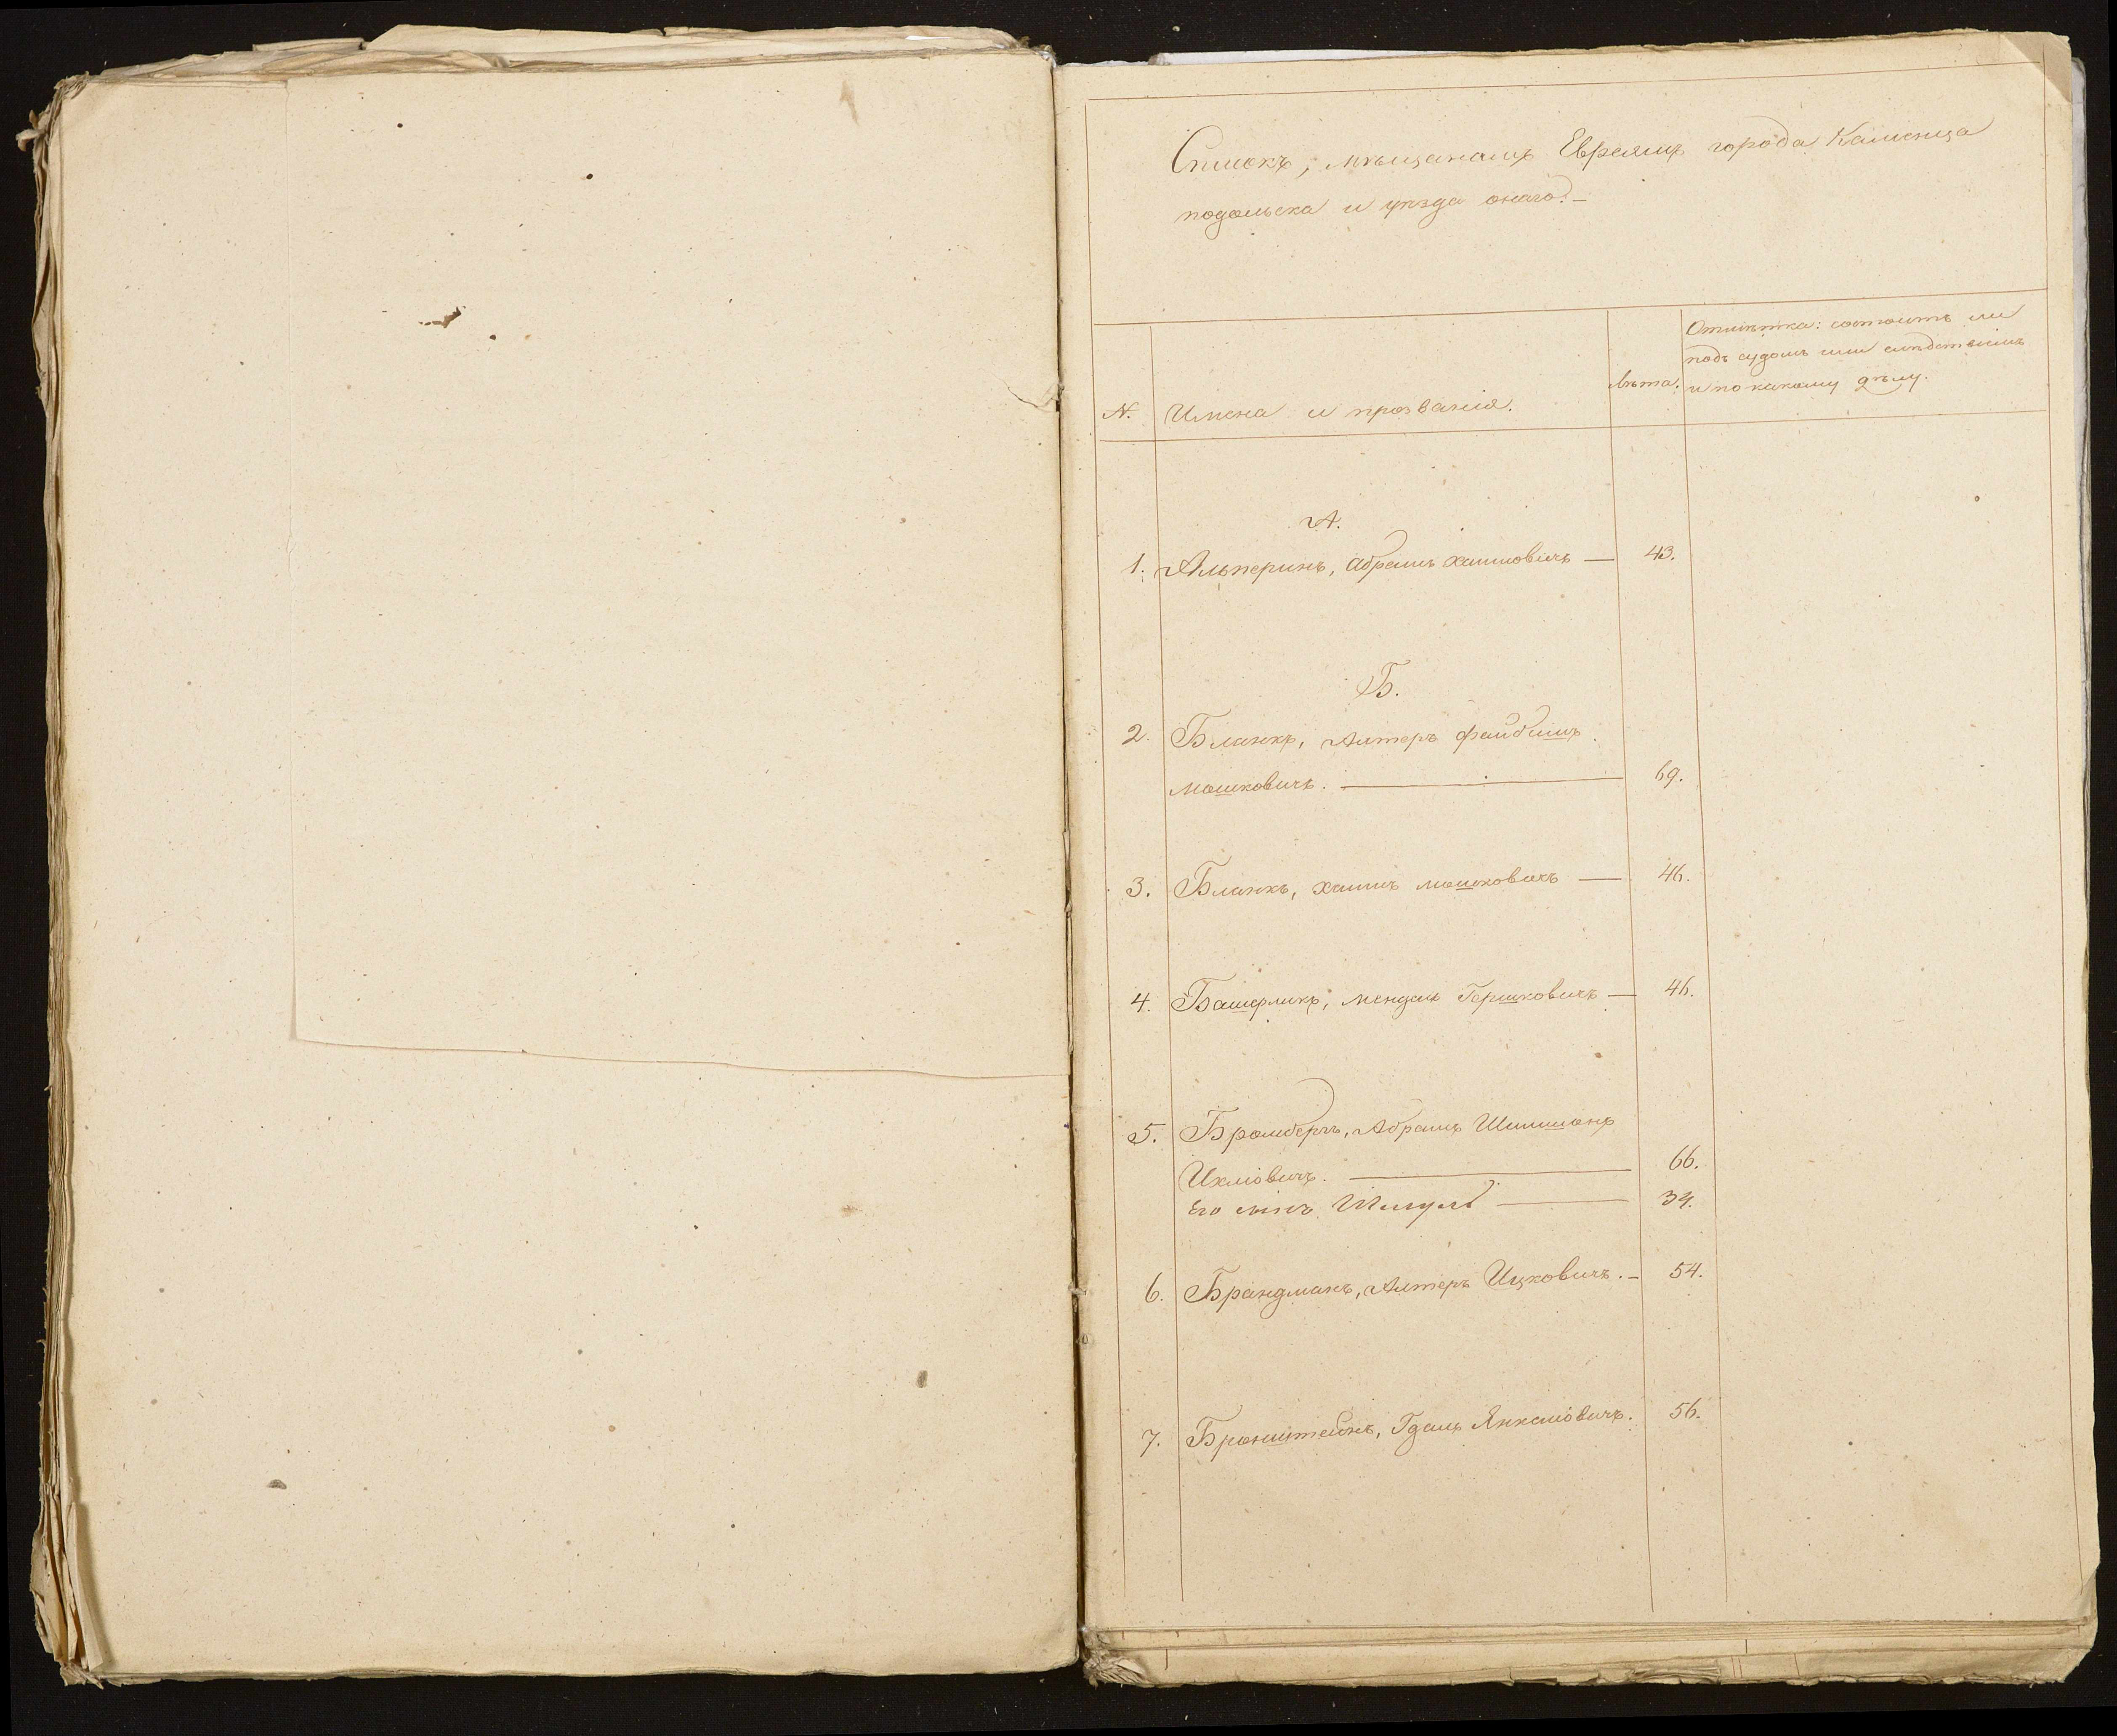 Списокъ, мѣщанамъ Евреямъ города Каменца
подольска и уѣзда онаго. —
N. Имена и прозванія.
Лѣта.
Отмѣтка: состоитъ ли
подъ судомъ или слѣдствіемъ
и по какому дѣлу.
А.
1. Альперинъ, Абрамъ Хаимовичъ — 43.
Б.
2. Бланкъ, Алтеръ Файбишъ
Мошковичъ. — 69.
3. Бланкъ, Хаимъ Мошковичъ — 46.
4. Башерликъ, Мендель Гершковичъ — 46.
5. Бромбергъ, Абрамъ Шимшонъ
Ихиловичъ. — 66.
Его сынъ Шмуль — 34.
6. Брандманъ, Алтеръ Ицковичъ. — 54.
7. Бронштейнъ, Гдаль Янкелiовичъ. 56.